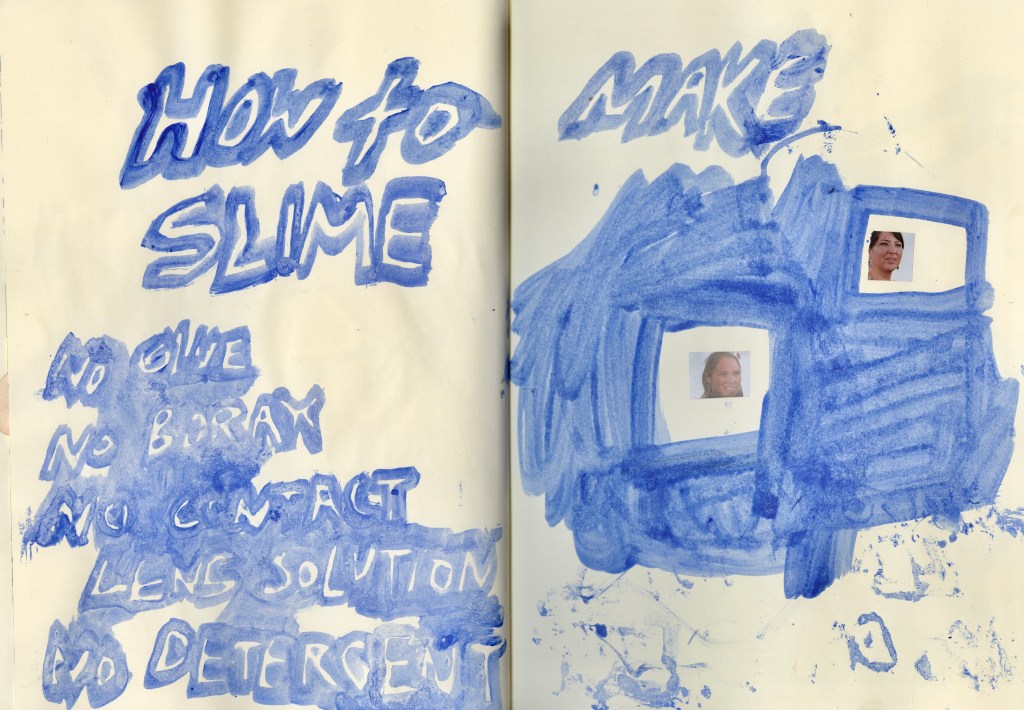 HOW to MAKE
SLIME
NO GLUE
NO BORAX
NO CONTACT
LENS SOLUTION
NO DETERGENT